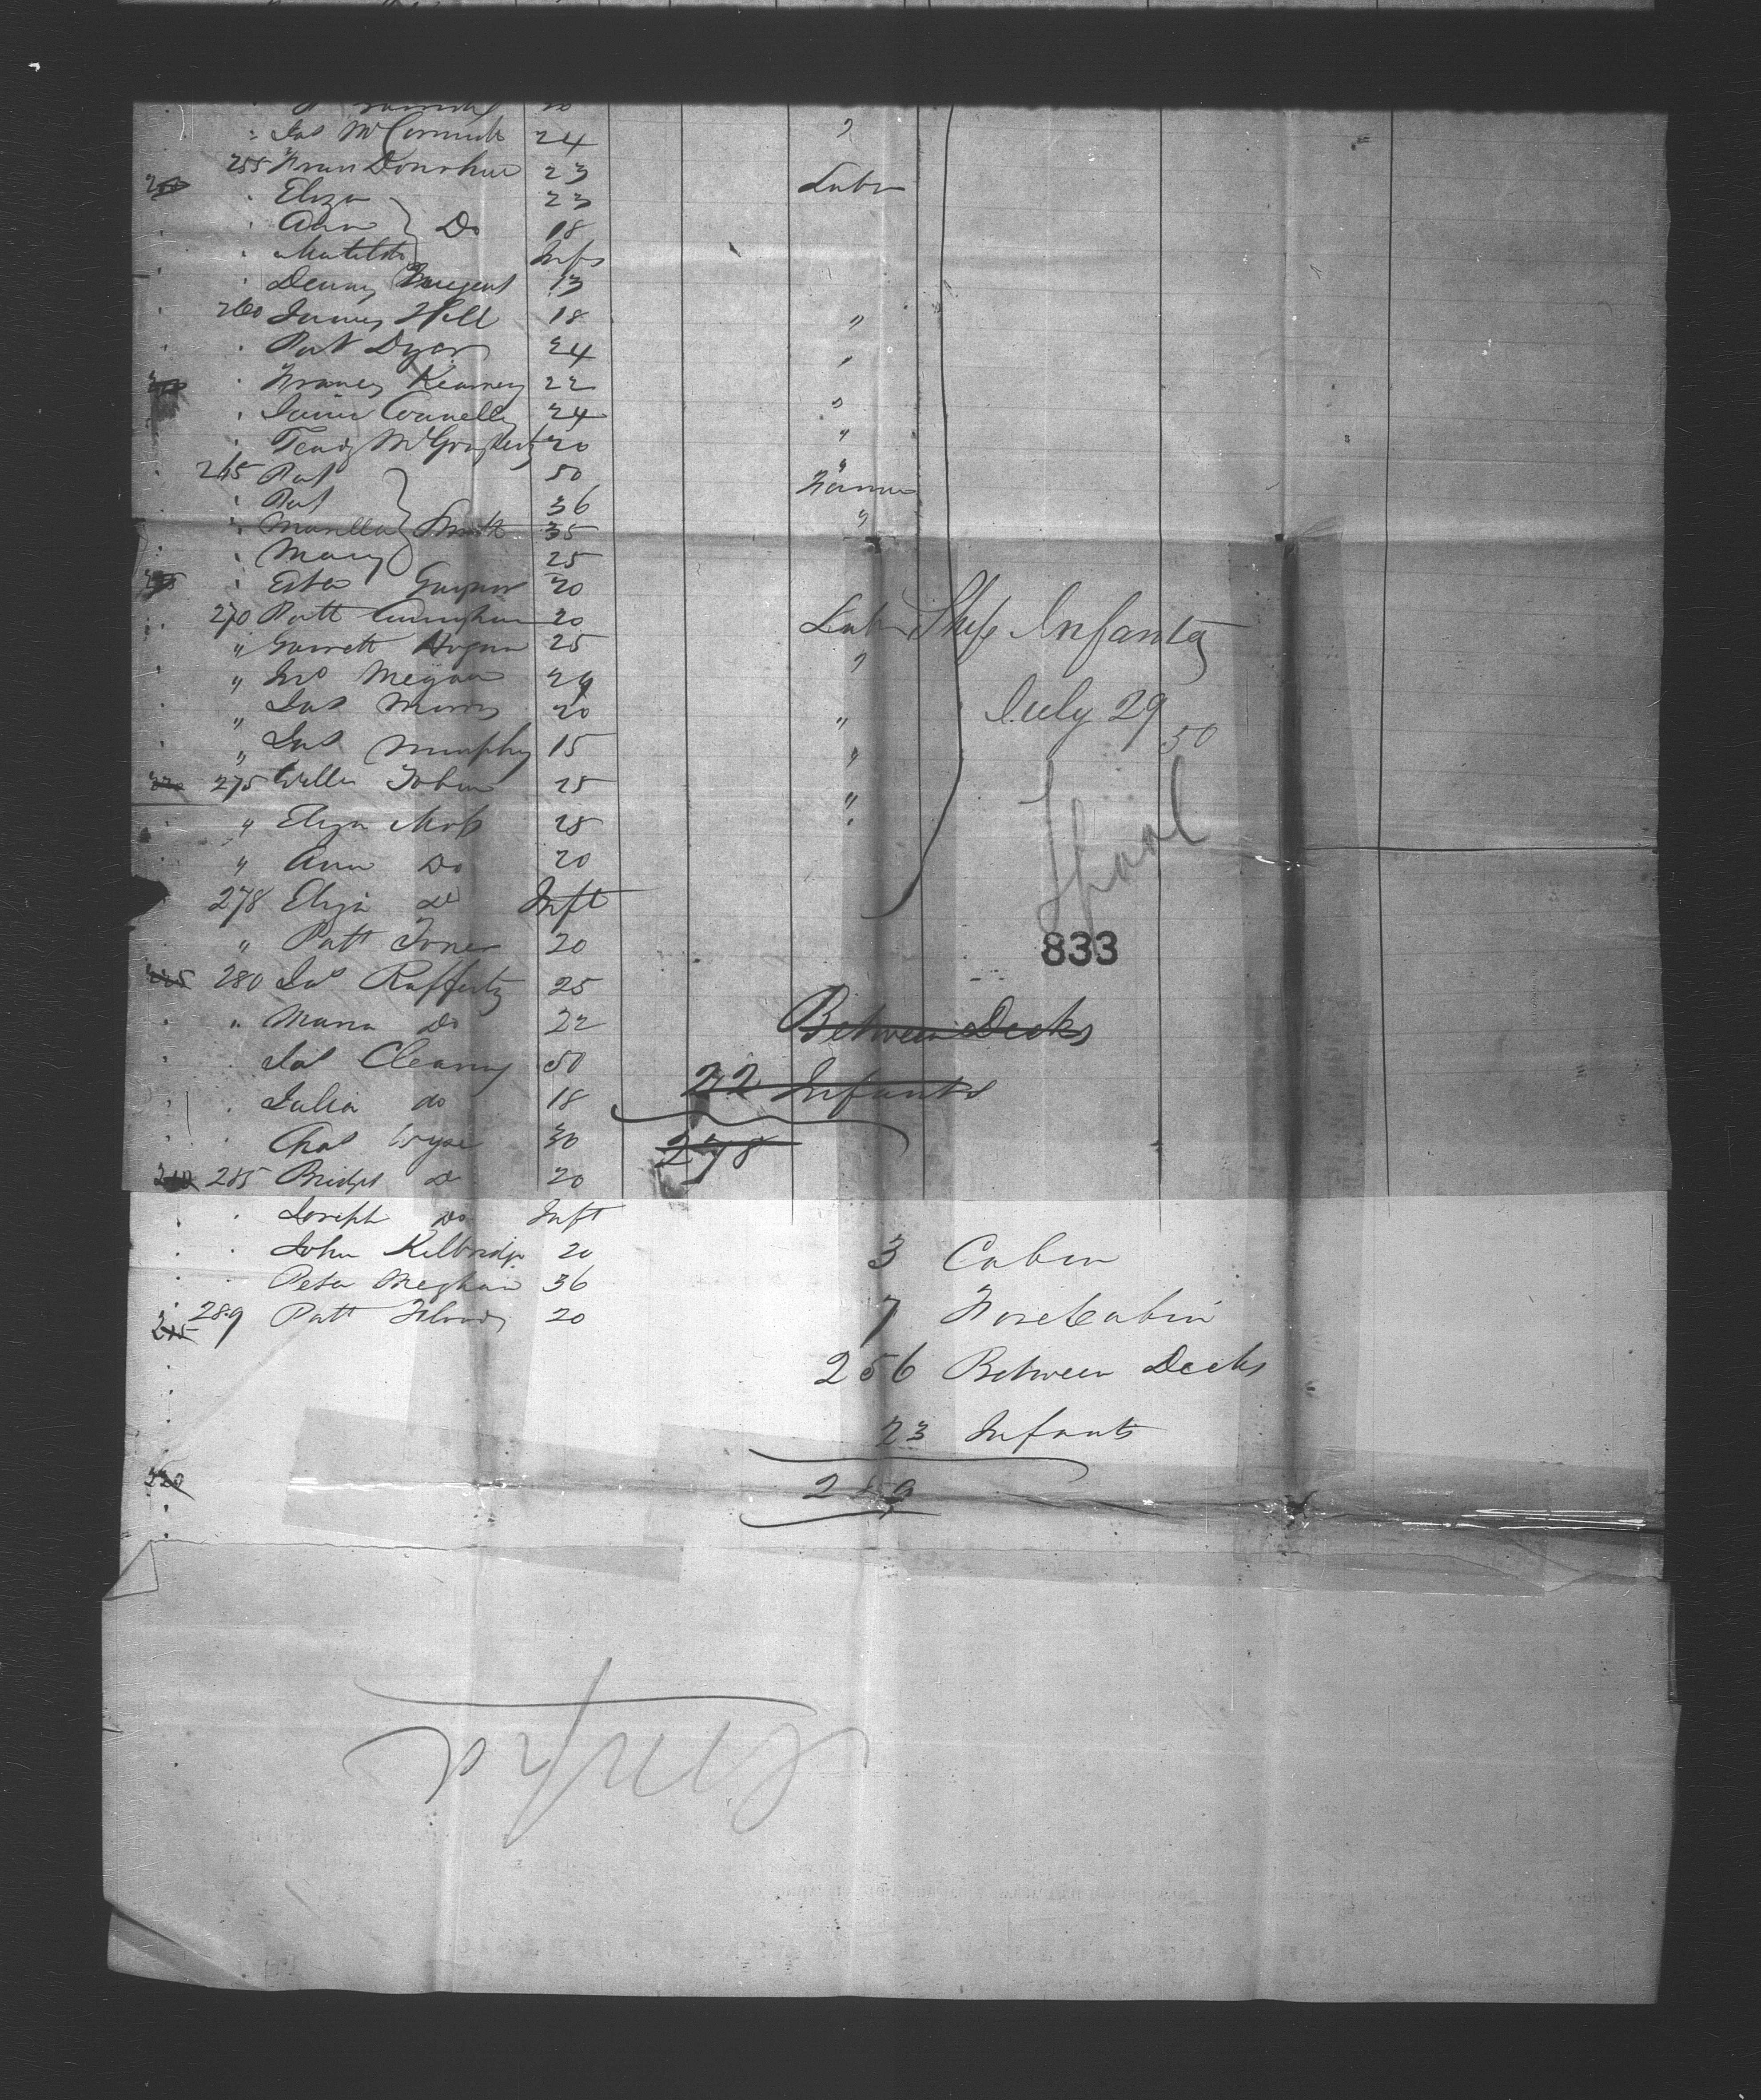 Jas McCormick 24 "
255 Fran Donohue 23 Labr
Eliza 23
Ann } Do 18
Matilda Inft
Denny Nugent 13
260 James Hill 18 "
Pat Dyer 24 "
Francis Kearney 22
James Connelly 24 "
Teady McGraghty 20 "
265 Pat 50 "
Pat 36 Farmer
Marella } Smith 35 "
Mary 25
Ester Gaynor 20
270 Patt Cunningham 20 Labr
" Garrett Hogan 25 "
" Jno Megan 24
" Jas Morris 20 "
" Jas Murphy 15 "
275 Willm Tobin 25 "
" Eliza Moss 25
" Ann Do 20
278 Eliza do Inft
" Patt Toner 20
280 Jas Rafferty 25
" Maria Do 22
Jas Cleary 50
Julia do 18
Chas Wyse 30
285 Bridget do 20
Joseph Do Inft
John Kilbridge 20
Peter Meghan 36
289 Patt Floody 20
320
Ship Infanta
July 29
50
Lpool
833
Between Decks
22 Infants
278
3 Cabin
7 Fore Cabin
256 Between Decks
23 Infants
289